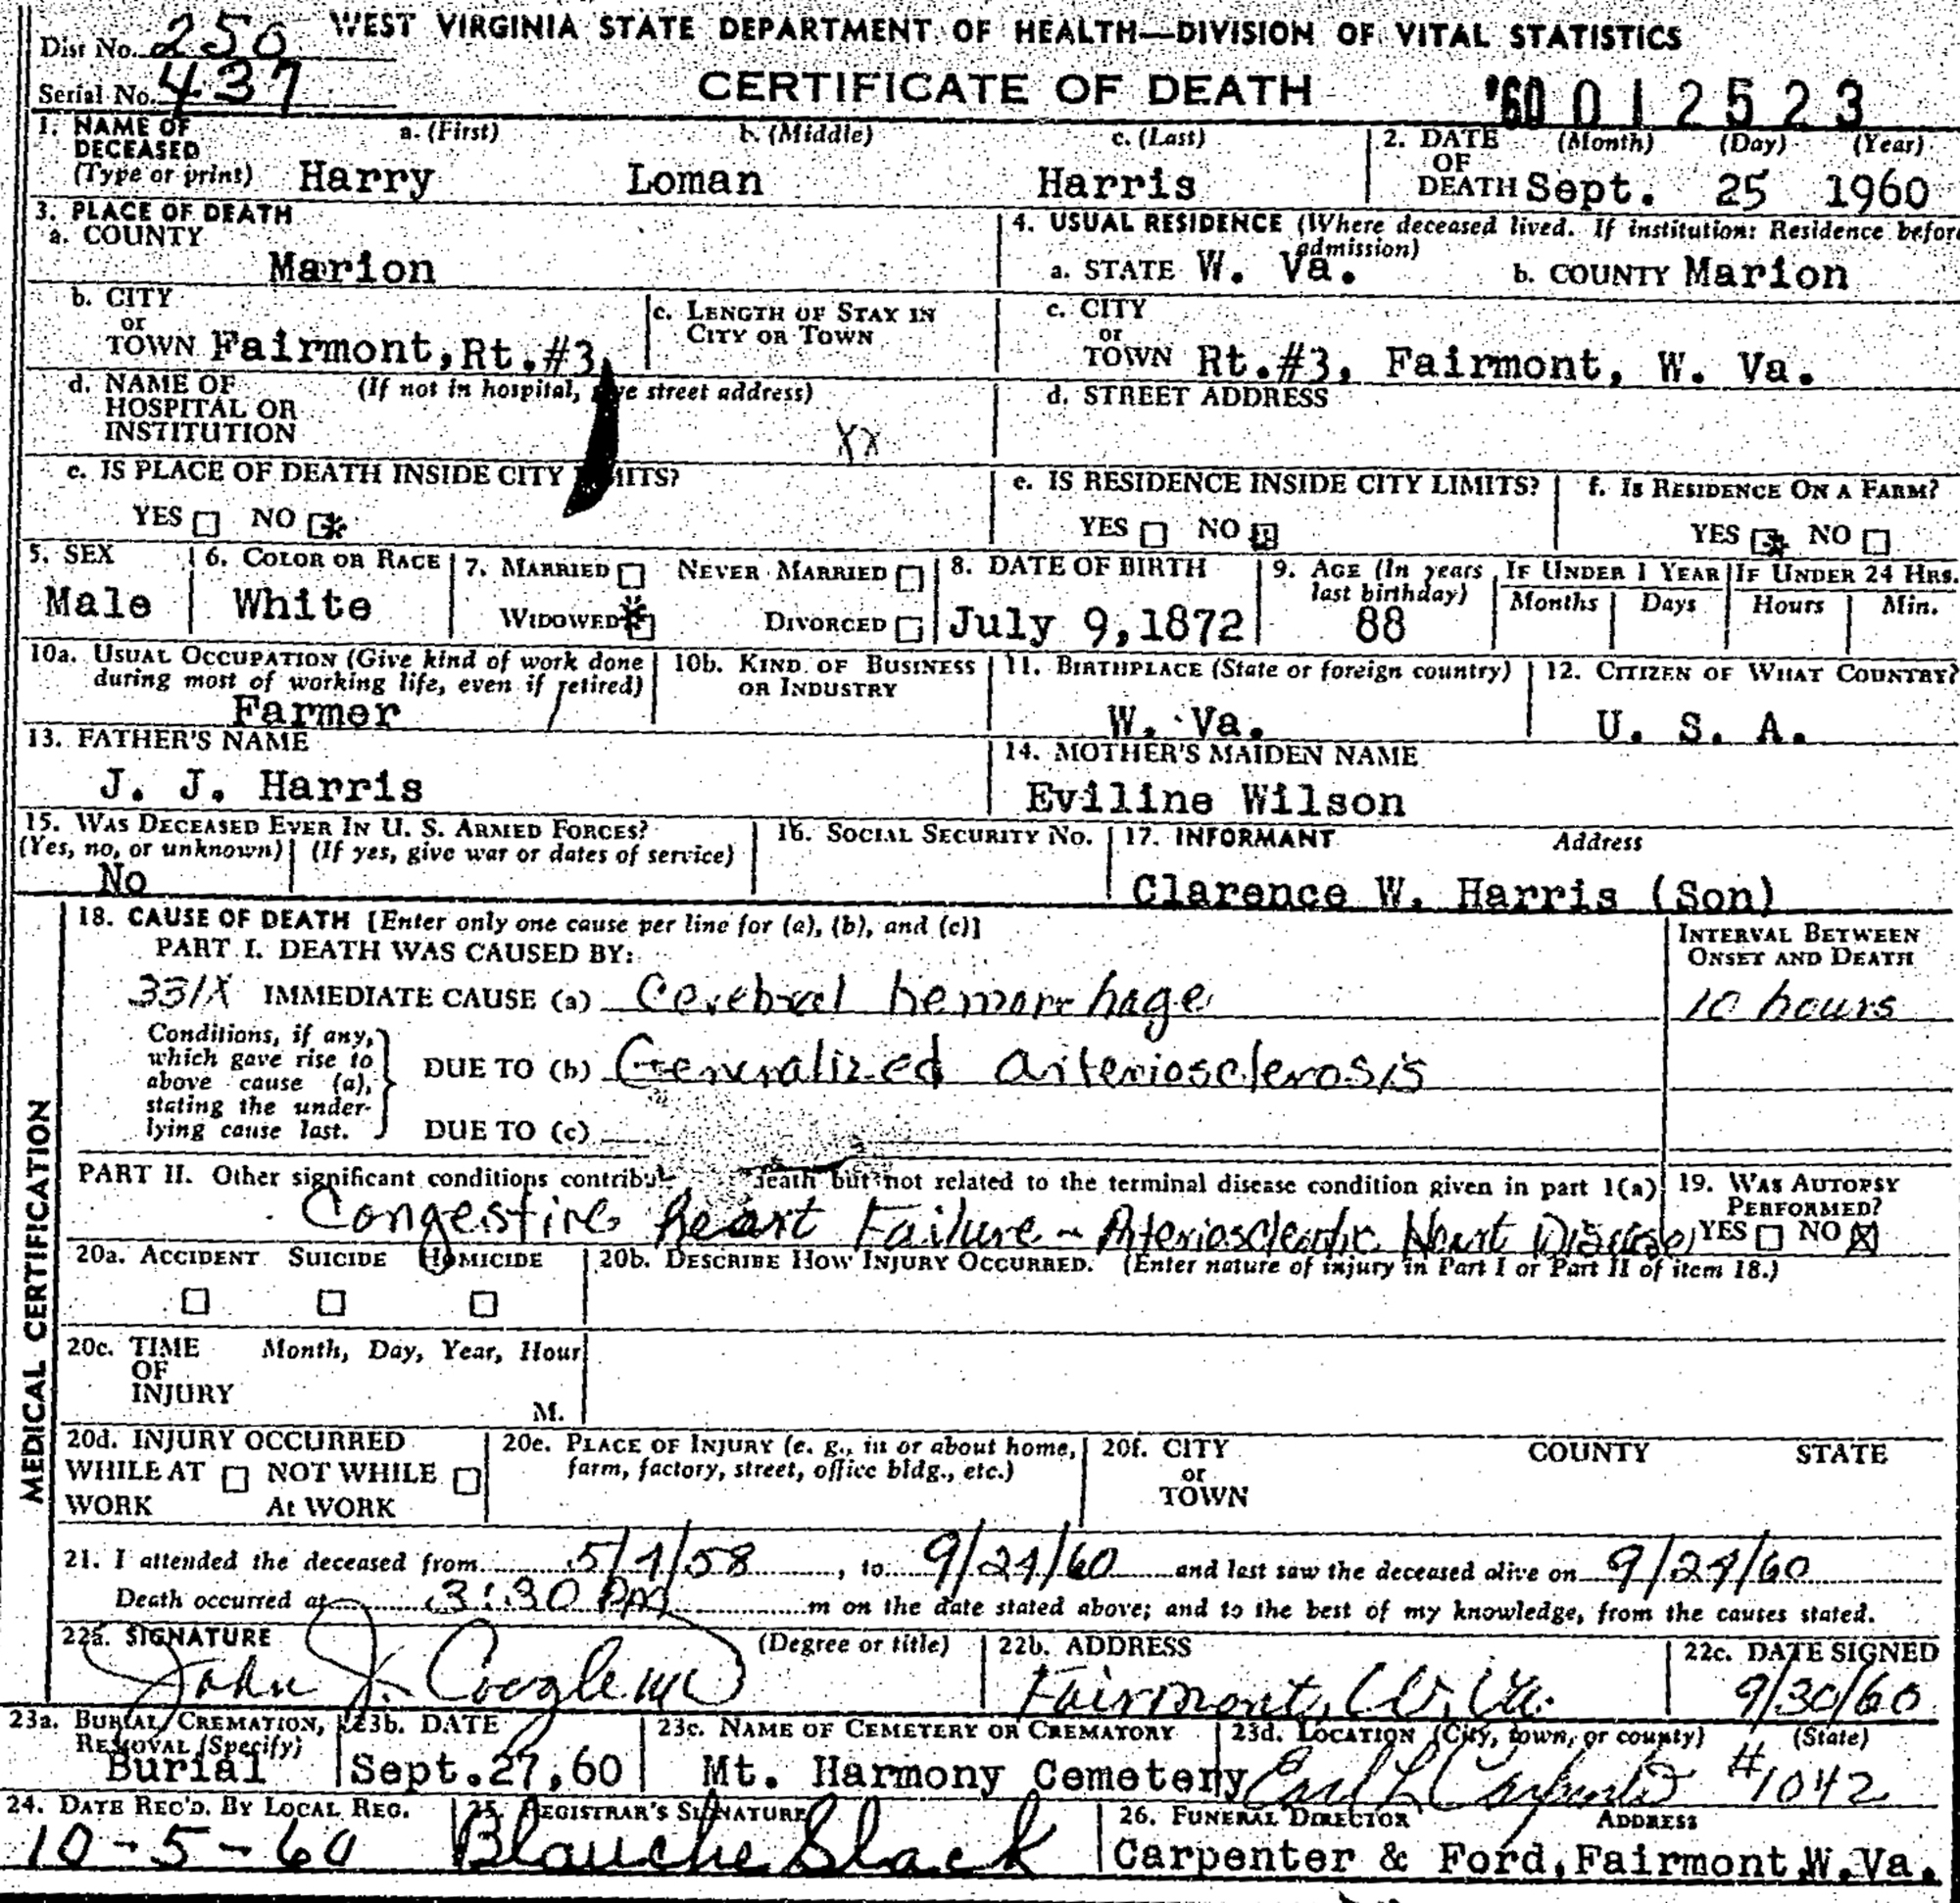 WEST VIRGINIA STATE DEPARTMENT OF HEALTH—DIVISION OF VITAL STATISTICS
Dist No. 250
Serial No. 437
CERTIFICATE OF DEATH
'60 012523
1. NAME OF DECEASED (Type or print) a. (First) b. (Middle) c. (Last)
Harry Loman Harris
2. DATE OF DEATH (Month) (Day) (Year)
Sept. 25 1960
3. PLACE OF DEATH
a. COUNTY
Marion
4. USUAL RESIDENCE (Where deceased lived. If institution: Residence before admission)
a. STATE W. Va. b. COUNTY Marion
b. CITY or TOWN Fairmont,Rt.#3,
c. LENGTH OF STAY IN CITY OR TOWN
c. CITY or TOWN Rt.#3, Fairmont, W. Va.
d. NAME OF HOSPITAL OR INSTITUTION (If not in hospital, give street address)
XX
d. STREET ADDRESS
e. IS PLACE OF DEATH INSIDE CITY LIMITS?
YES NO
e. IS RESIDENCE INSIDE CITY LIMITS?
YES NO
f. IS RESIDENCE ON A FARM?
YES NO
5. SEX
Male
6. COLOR OR RACE
White
7. MARRIED NEVER MARRIED
WIDOWED DIVORCED
8. DATE OF BIRTH
July 9,1872
9. AGE (In years last birthday)
88
IF UNDER 1 YEAR
Months Days
IF UNDER 24 HRS.
Hours Min.
10a. USUAL OCCUPATION (Give kind of work done during most of working life, even if retired)
Farmer
10b. KIND OF BUSINESS OR INDUSTRY
11. BIRTHPLACE (State or foreign country)
W. Va.
12. CITIZEN OF WHAT COUNTRY?
U. S. A.
13. FATHER'S NAME
J. J. Harris
14. MOTHER'S MAIDEN NAME
Eviline Wilson
15. WAS DECEASED EVER IN U. S. ARMED FORCES?
(Yes, no, or unknown) (If yes, give war or dates of service)
No
16. SOCIAL SECURITY No.
17. INFORMANT Address
Clarence W. Harris (Son)
MEDICAL CERTIFICATION
18. CAUSE OF DEATH [Enter only one cause per line for (a), (b), and (c)]
PART I. DEATH WAS CAUSED BY:
INTERVAL BETWEEN ONSET AND DEATH
331X IMMEDIATE CAUSE (a) Cerebral hemorrhage
10 hours
Conditions, if any, which gave rise to above cause (a), stating the underlying cause last.
DUE TO (b) Generalized arteriosclerosis
DUE TO (c)
PART II. Other significant conditions contribut death but not related to the terminal disease condition given in part 1(a)
Congestive heart Failure - Arteriosclerotic Heart Disease
19. WAS AUTOPSY PERFORMED?
YES NO
20a. ACCIDENT SUICIDE HOMICIDE
20b. DESCRIBE HOW INJURY OCCURRED. (Enter nature of injury in Part I or Part II of item 18.)
20c. TIME OF INJURY Month, Day, Year, Hour
M.
20d. INJURY OCCURRED
WHILE AT WORK NOT WHILE At WORK
20e. PLACE OF INJURY (e. g., in or about home, farm, factory, street, office bldg., etc.)
20f. CITY or TOWN COUNTY STATE
21. I attended the deceased from 5/1/58, to 9/24/60 and last saw the deceased alive on 9/24/60
Death occurred at 3:30 PM m on the date stated above; and to the best of my knowledge, from the causes stated.
22a. SIGNATURE (Degree or title)
John J.
22b. ADDRESS
Fairmont, W. Va.
22c. DATE SIGNED
9/30/60
23a. BURIAL, CREMATION, REMOVAL (Specify)
Burial
23b. DATE
Sept.27,60
23c. NAME OF CEMETERY OR CREMATORY
Mt. Harmony Cemetery
23d. LOCATION (City, town, or county) (State)
Earl L Carpenter #1042
24. DATE REC'D. BY LOCAL REG.
10-5-60
25. REGISTRAR'S SIGNATURE
Blanche Slack
26. FUNERAL DIRECTOR ADDRESS
Carpenter & Ford,Fairmont,W.Va.